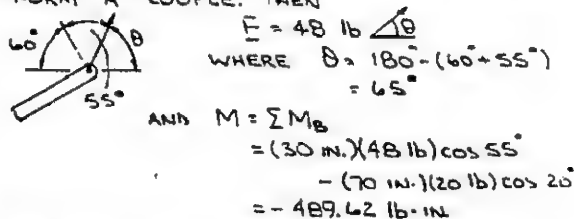 FORM A COUPLE. THEN
F = 48 lb θ
60° θ
WHERE θ = 180° - (60° + 55°)
= 65°
55°
AND M = ΣM_B
= (30 IN.)(48 lb) cos 55°
- (70 IN.)(20 lb) cos 20°
= - 489.62 lb·IN